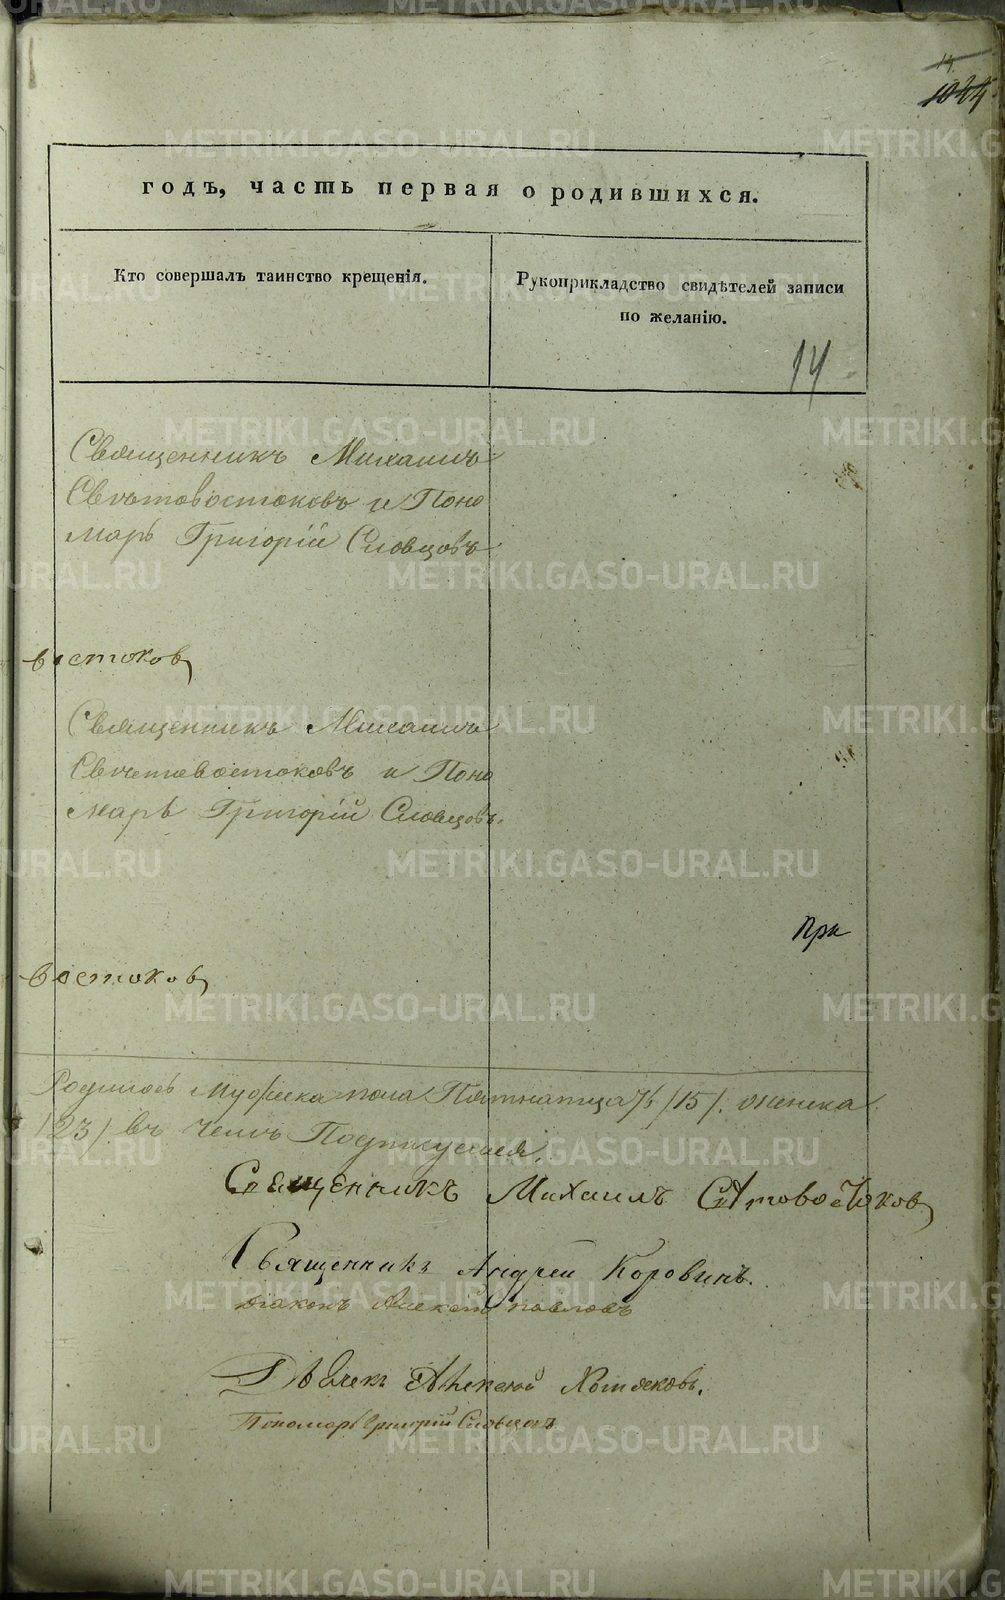 14
1044
годъ, часть первая о родившихся.
Кто совершалъ таинство крещенія.
Рукоприкладство свидѣтелей записи
по желанію.
14
Священникъ Михаилъ
Свѣтовостоковъ и Поно
марь Григорій Словцовъ
востоковъ
Священникъ Михаилъ
Свѣтовостоковъ и Поно
марь Григорій Словцовъ.
При
востоковъ
Родилось мужеска пола Пятнатцать /15/. женска
/23/. въ чемъ Подписуемся.
Священникъ Михаилъ Свѣтовостоковъ
Священникъ Андрей Коровинъ.
діаконъ Алексей павловъ
Дьячек Алексей Хотяковъ.
Пономарь Григорій Словцовъ
METRIKI.GASO-URAL.RU